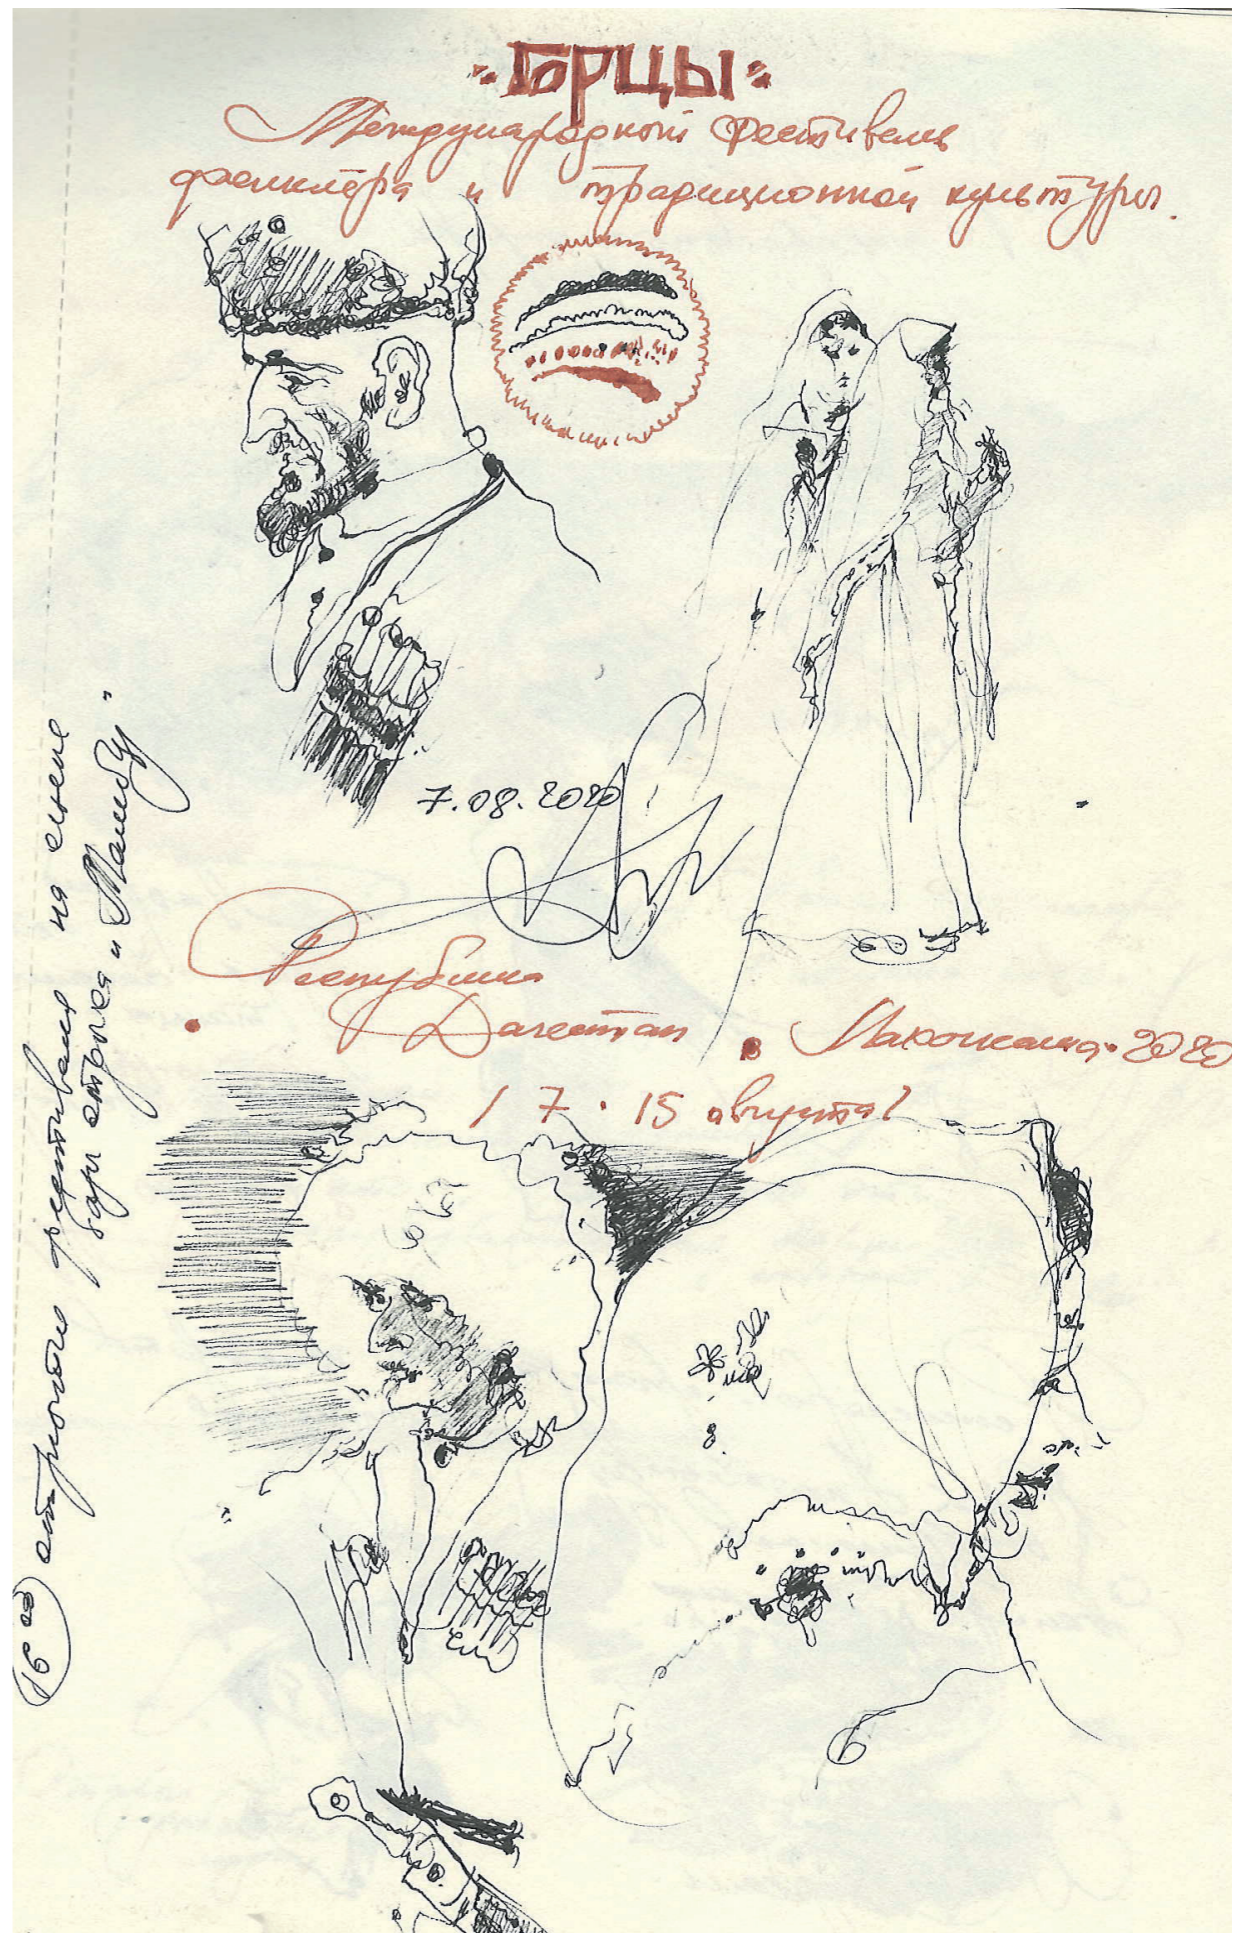 "ГОРЦЫ"
Международный фестиваль
фольклора и традиционной культуры.
7.08.2020
Республика
Дагестан Махачкала 2020
/ 7 - 15 августа /
16 00 открытие фестиваля на сцене
"